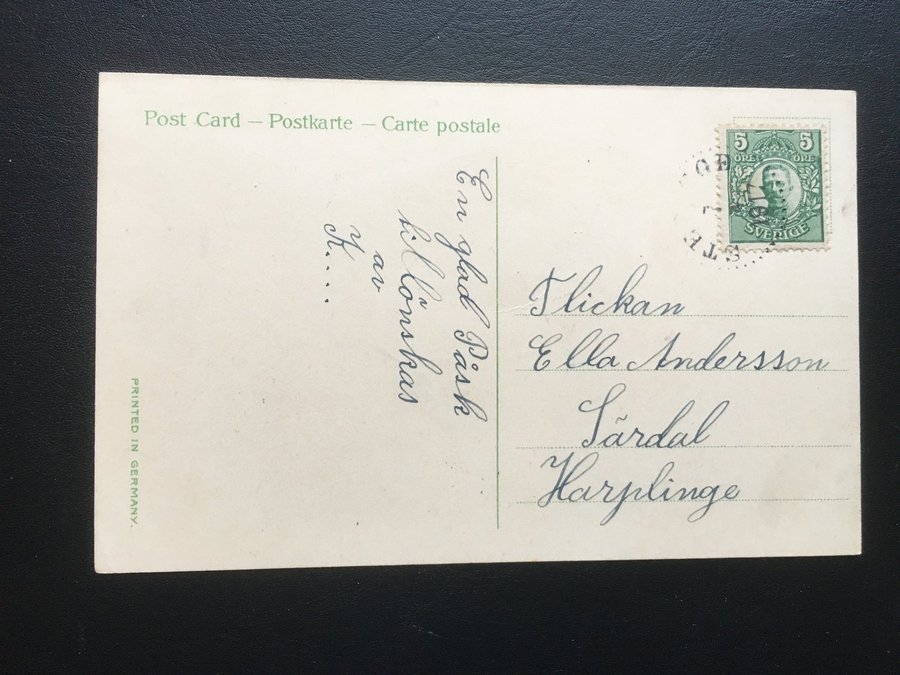 Post Card – Postkarte – Carte postale
5 5
ÖRE ÖRE
SVERIGE
En glad Påsk
tillönskas
av
K....
Flickan
Ella Andersson
Särdal
Harplinge
PRINTED IN GERMANY.